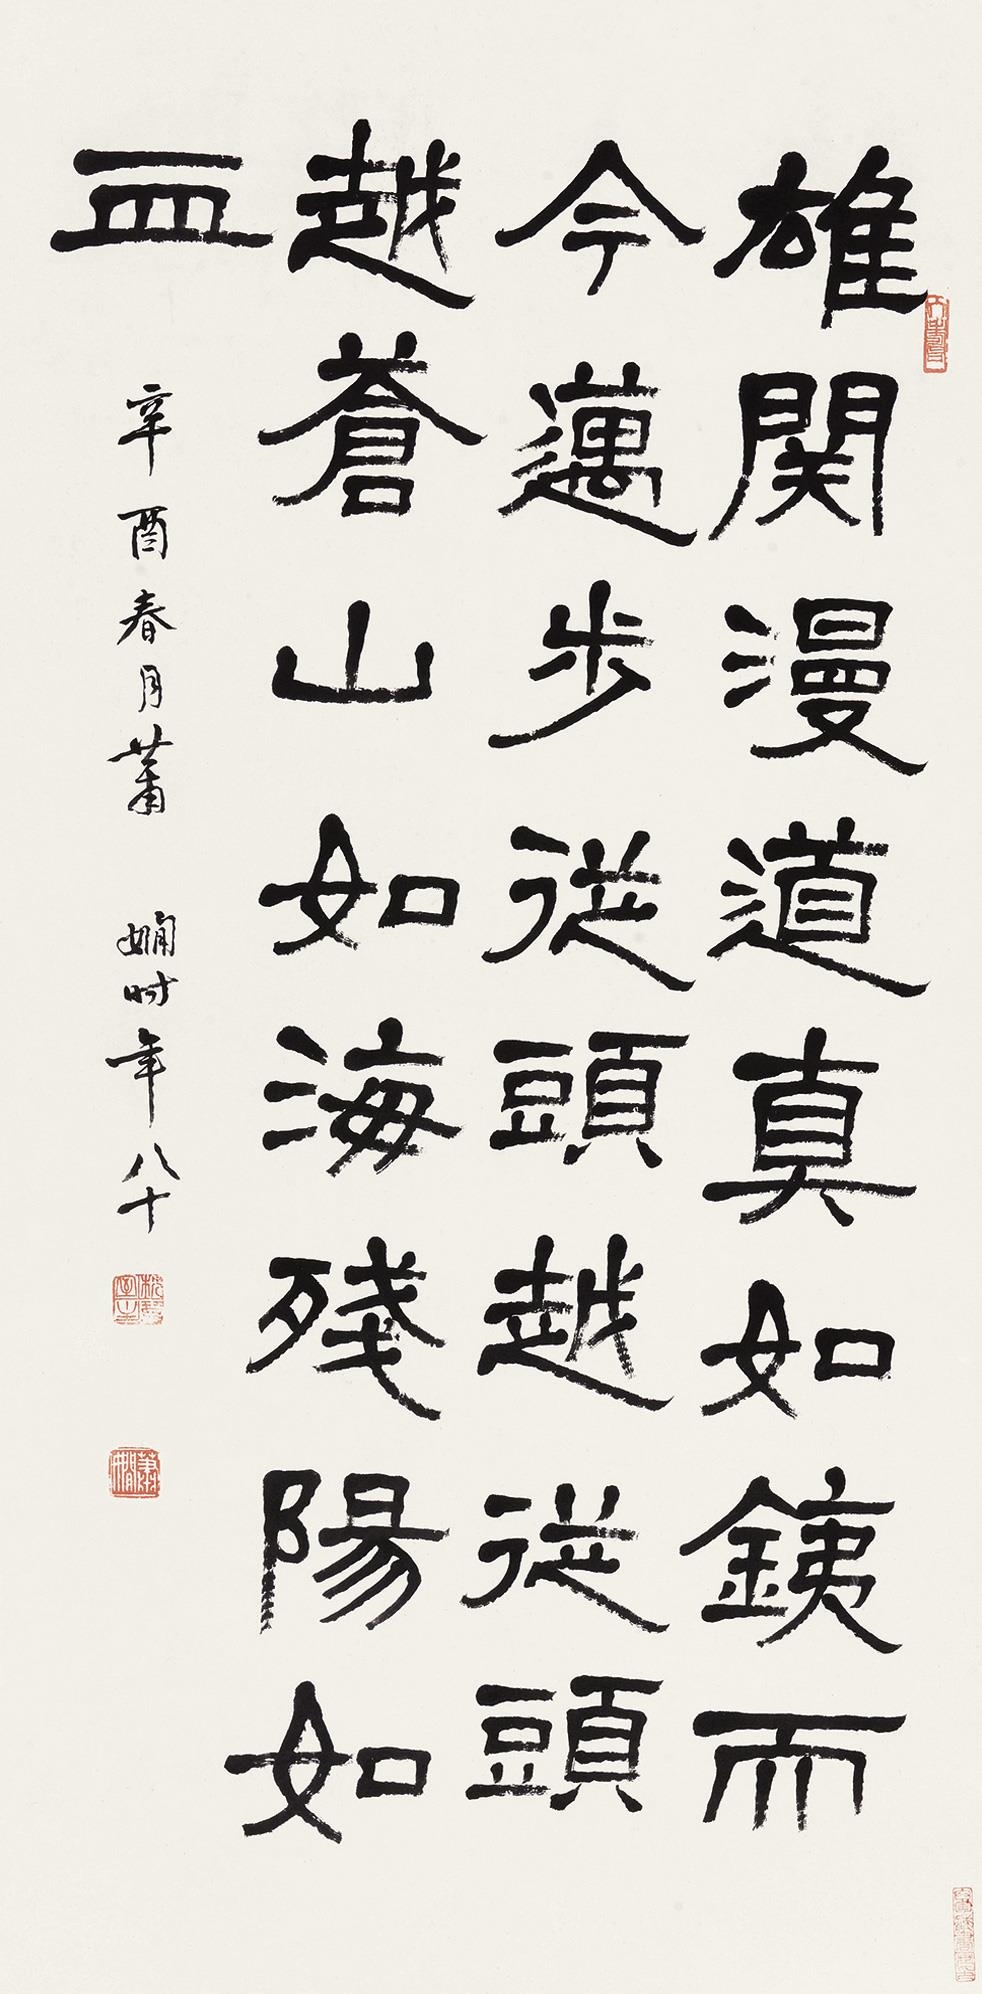 雄關漫道真如鐵而
今邁步從頭越從頭
越蒼山如海殘陽如
血
辛酉春月蕭嫻時年八十
蕭嫻